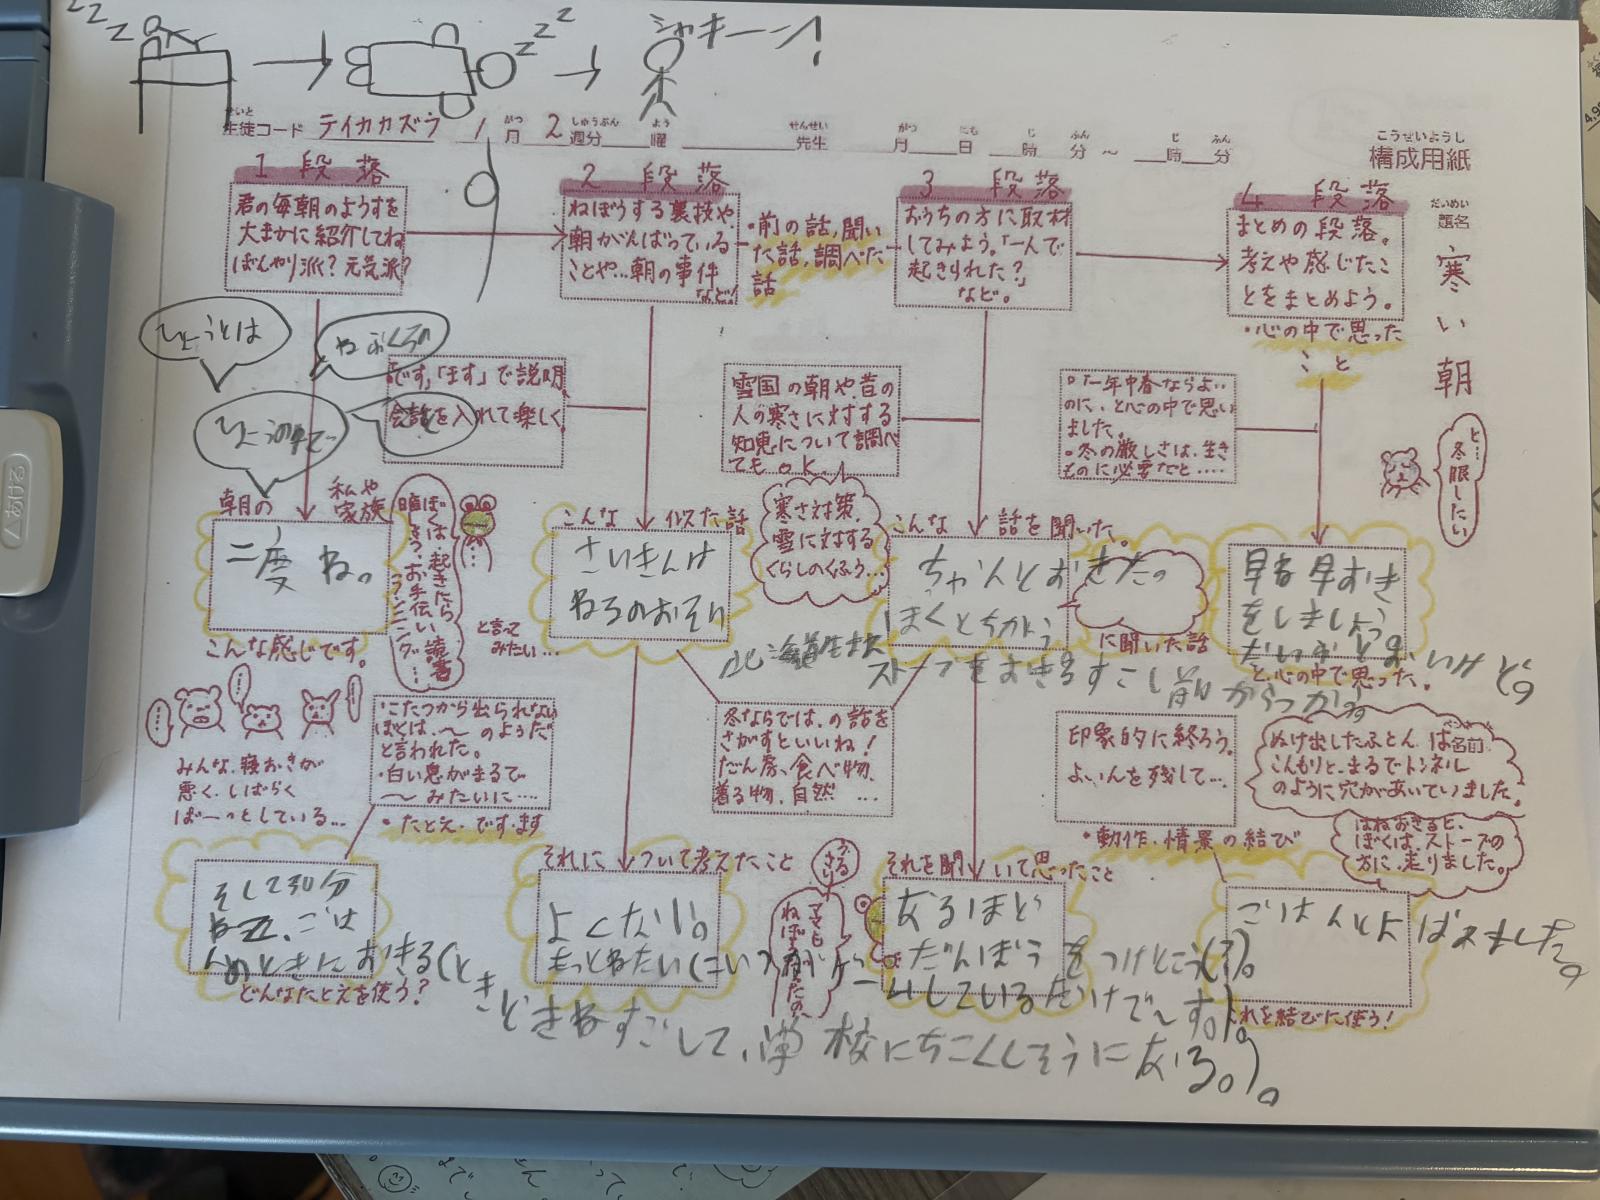 zzz
zzz
シャキーン!
せいと
生徒コード テイカカズラ
1月 2週分 曜
がつ しゅうぶん よう
せんせい
先生
がつ にち じ ふん じ ふん
月 日 時 分 ~ 時 分
こうせいようし
構成用紙
だいめい
題名
寒い朝
1段落
君の毎朝のようすを
大まかに紹介してね
ぼんやり派?元気派?
2段落
ねぼうする裏技や、
朝がんばっている
ことや…朝の事件
など!
・前の話,聞い
た話,調べた
話
3段落
おうちの方に取材
してみよう。「一人で
起きられた?」
など。
4段落
まとめの段落。
考えや感じたこ
とをまとめよう。
・心の中で思った
こと
ひょうとは
です,「ます」で説明
会話を入れて楽しく。
雪国の朝や、昔の
人の寒さに対する
知恵について調べ
てもok
。「一年中春ならよい
のに、と心の中で思い
ました。
・冬の厳しさは、生き
ものに必要だと……
ビ…
冬眠したい
朝の 私や
家族
二度ね。
こんな感じです。
ぼくは、起きたら
と言って
みたい…
こんな 似た話
さいきんは
ねるのおそい
寒さ対策、
雪に対する
くらしのくふう…
こんな 話を聞いた。
ちゃんとおきたの
ぼくとちがう
に聞いた話
北海道生まれ
ストーブをおきるすこし前からつかう
をしましょう
と、心の中で思った。
みんな、寝おきが
悪く、しばらく
ぼーっとしている…
こたつから出られない
ぼくは、~のようだ
と言われた。
・白い息がまるで
~みたいに…
・たとえ・です・ます
冬ならでは、の話を
さがすといいね!
だん房、食べ物、
着る物、自然…
印象的に終ろう。
よいんを残して…
・動作・情景の結び
ぬけ出したふとん は名前
こんもりと、まるでトンネル
のように穴があいていました。
はねおきると、
ぼくは、ストーブの
方に、走りました。
そして30分
ごは
んのときにおきる(とき
どきねすごして、学校にちこくしそうになる。)。
どんなたとえを使う?
それに ついて考えたこと
よくない。
もっとねたい
ママも
ねぼうしたの
それを聞いて思ったこと
なるほど
だんぼうをつけとこう
ゲームしているだけで~す。)。
ごはんとよばれました。
これを結びに使う!